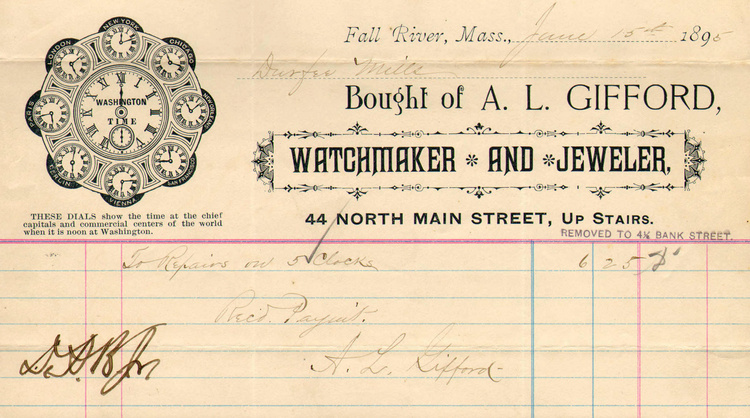 NEW YORK
LONDON
CHICAGO
PARIS
WASHINGTON
TIME
BERLIN
VIENNA
SAN FRANCISCO
THESE DIALS show the time at the chief
capitals and commercial centers of the world
when it is noon at Washington.
Fall River, Mass., June 15th 1895
Durfee Mills
Bought of A. L. GIFFORD,
WATCHMAKER * AND * JEWELER,
44 NORTH MAIN STREET, UP STAIRS.
REMOVED TO 4½ BANK STREET.
To Repairs on 5 Clocks 6 25
Recd. Paymt.
A. L. Gifford